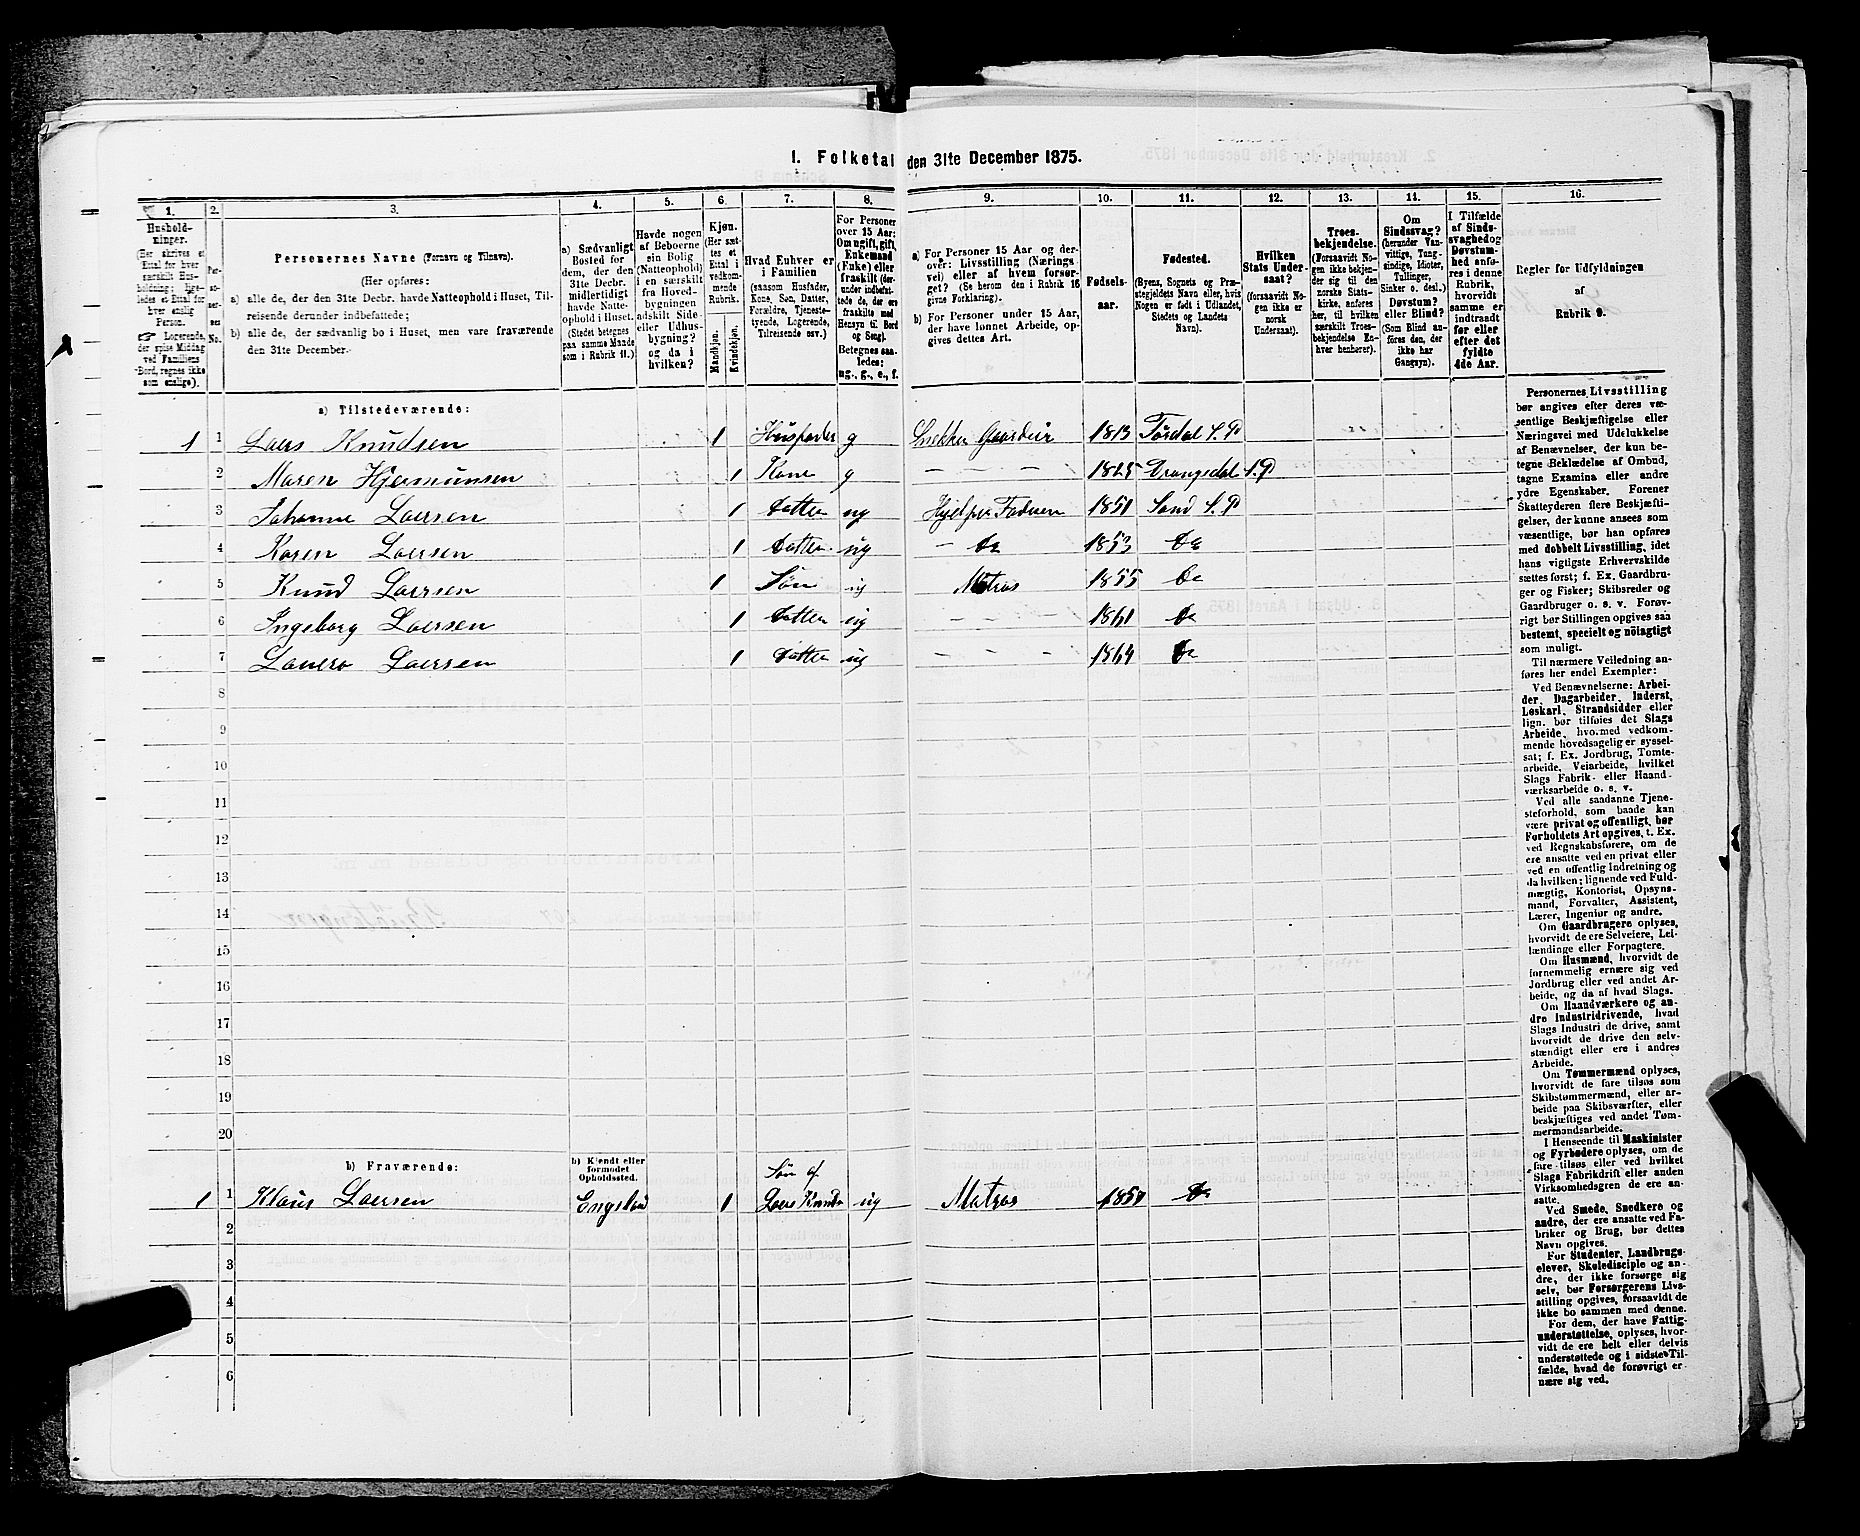 1. Folketal den 31te December 1875.
1. 2. 3. 4. 5. 6. 7. 8. 9. 10. 11. 12. 13. 14. 15. 16.
Personernes Navne (Fornavn og Tilnavn).
(Her opføres:
a) alle de, der den 31te Decbr. havde Natteophold i Huset, Tilreisende derunder indbefattede;
b) alle de, der sædvanlig bo i Huset, men vare fraværende den 31te December.
a) Sædvanligt Bosted for dem, der den 31te Decbr. midlertidigt havde Natteophold i Huset. (Stedet betegnes paa samme Maade som i Rubrik 11.)
Havde nogen af Beboerne sin Bolig (Natteophold) i en særskilt fra Hovedbygningen adskilt Side- eller Udhusbygning? og da i hvilken?
Kjøn. (Her sættes et Ettal i vedkommende Rubrik.
Mandkjøn. Kvindekjøn.
Hvad Enhver er i Familien (saasom Husfader, Kone, Søn, Datter, Forældre, Tjenestetyende, Logerende, Tilreisende osv.)
For Personer over 15 Aar: Om ugift, gift, Enkemand (Enke) eller fraskilt (derunder indbefattede de, der ere fraskilte med Hensyn til Bord og Seng). Betegnes saaledes: ug., g., e., f.
a) For Personer 15 Aar og derover: Livsstilling (Næringsvei) eller af hvem forsørget? (Se herom den i Rubrik 16 givne Forklaring).
b) For Personer under 15 Aar, der have lønnet Arbeide, opgives dettes Art.
Fødselsaar.
Fødested.
(Byens, Sognets og Præstegjeldets Navn eller, hvis Nogen er født i Udlandet, Stedets og Landets Navn).
Hvilken Stats Undersaat?
(forsaavidt Nogen ikke er norsk Undersaat).
Troesbekjendelse.
(Forsaavidt Nogen ikke bekjender sig til den norske Statskirke, anføres her, til hvilken særskilt Troesbekjendelse Enhver henhører).
Om Sindssvag? (herunder Vanvittige, Tungsindige, Idioter, Tullinger, Sinker o. desl.) Døvstum? eller Blind? (Som Blind anføres den, der ikke har Gangsyn).
I Tilfælde af Sindssvaghed og Døvstumhed anføres i denne Rubrik, hvorvidt samme er indtraadt før eller efter det fyldte 4de Aar.
Regler for Udfyldningen
af
Rubrik 9.
a) Tilstedeværende:
1 1 Laers Knudsen 1 Husfader g Snekker Gaardeier 1813 Tørdal S.P
2 Maren Hjermunsen 1 Kone g - - - 1825 Drangedal S.P
3 Johanne Laersen 1 Datter ug Hjelper Faderen 1851 Sand S.P
4 Karen Laersen 1 Datter ug - Do 1853 Do
5 Knud Laersen 1 Søn ug Matros 1855 Do
6 Ingeborg Laersen 1 Datter ug - - - 1861 Do
7 Laersen 1 Datter ug - - - 1864 Do
8
9
10
11
12
13
14
15
16
17
18
19
20
b) Fraværende:
b) Kjendt eller formodet Opholdssted.
Søn af
1 1 Klaus Laersen England 1 Laers Knuds ug Matros Do
2
3
4
5
6
Personernes Livsstilling bør angives efter deres væsentlige Beskjæftigelse eller Næringsvei med Udelukkelse af Benævnelser, der kun betegne Beklædelse af Ombud, tagne Examina eller andre ydre Egenskaber. Forener Skatteyderen flere Beskjæftigelser, der kunne ansees som væsentlige, bør han opføres med dobbelt Livsstilling, idet hans vigtigste Erhvervskilde sættes først; f. Ex. Gaardbruger og Fisker; Skibsreder og Gaardbruger o. s. v. Forøvrigt bør Stillingen opgives saa bestemt, specielt og nöiagtigt som muligt.
Til nærmere Veiledning anføres her endel Exempler:
Ved Benævnelserne: Arbeider, Dagarbeider, Inderst, Løskarl, Strandsidder eller lign. bør tilføies det Slags Arbeide, hvormed vedkommende hovedsagelig er sysselsat; f. Ex. Jordbrug, Tomtearbeide, Veiarbeide, hvilket Slags Fabrik- eller Haandværksarbeide o. s. v.
Ved alle saadanne Tjenesteforhold, som baade kan være privat og offentligt, bør Forholdets Art opgives, t. Ex. ved Regnskabsførere, om de ere ansatte ved en privat eller ved en offentlig Indretning og da hvilken; lignende ved Fuldmægtig, Kontorist, Opsynsmand, Forvalter, Assistent, Lærer, Ingeniør og andre.
Om Gaardbrugere oplyses, hvorvidt de ere Selveiere, Leilændinge eller Forpagtere.
Om Husmænd, hvorvidt de fornemmelig ernære sig ved Jordbrug eller ved andet Arbeide, og da af hvad Slags.
Om Haandværkere og andre Industridrivende, hvad Slags Industri de drive, samt hvorvidt de drive den selvstændigt eller ere i andres Arbeide.
Om Tømmermænd oplyses, hvorvidt de fare tilsøs som Skibstømmermænd, eller arbeide paa Skibsværfter, eller beskjæftiges ved andet Tømmermandsarbeide.
I Henseende til Maskinister og Fyrbødere oplyses, om de fare tilsøs eller ved hvilket Slags Fabrikdrift eller anden Virksomhedsgren de ere ansatte.
Ved Smede, Snedkere og andre, der ere ansatte ved Fabriker og Brug, bør dettes Navn opgives.
For Studenter, Landbrugselever, Skoledisciple og andre, der ikke forsørge sig selv, bør Forsørgerens Livsstilling opgives, forsaavidt de ikke bo sammen med denne.
For dem, der have Fattigunderstøttelse, oplyses, hvorvidt de ere helt eller delvis understøttede og i sidste Tilfælde, hvad de forøvrigt ernære sig ved.